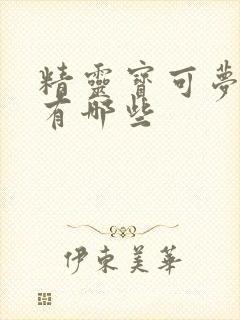 精靈寶可夢
有哪些
伊東美華